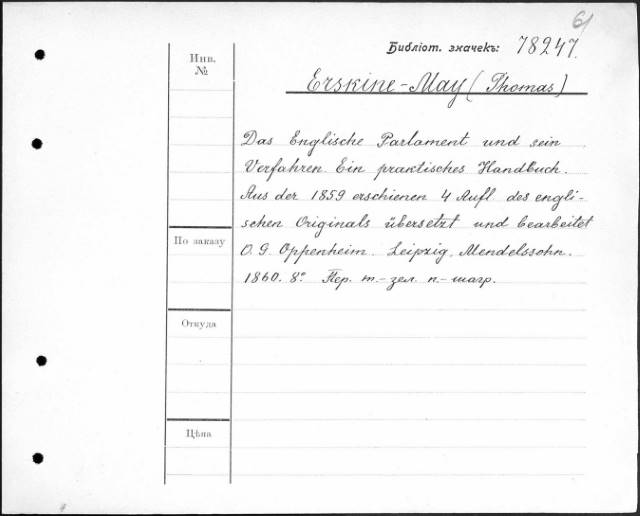 6
Библіот. значекъ: 78247.
Инв.
№
Erskine-May (Thomas)
Das Englische Parlament und sein
Verfahren. Ein praktisches Handbuch.
Aus der 1859 erschienen 4 Aufl. des engli-
schen Originals übersetzt und bearbeitet
O. G. Oppenheim. Leipzig. Mendelssohn.
1860. 8° Пер. т.-зел. п.-шагр.
По заказу
Откуда
Цѣна